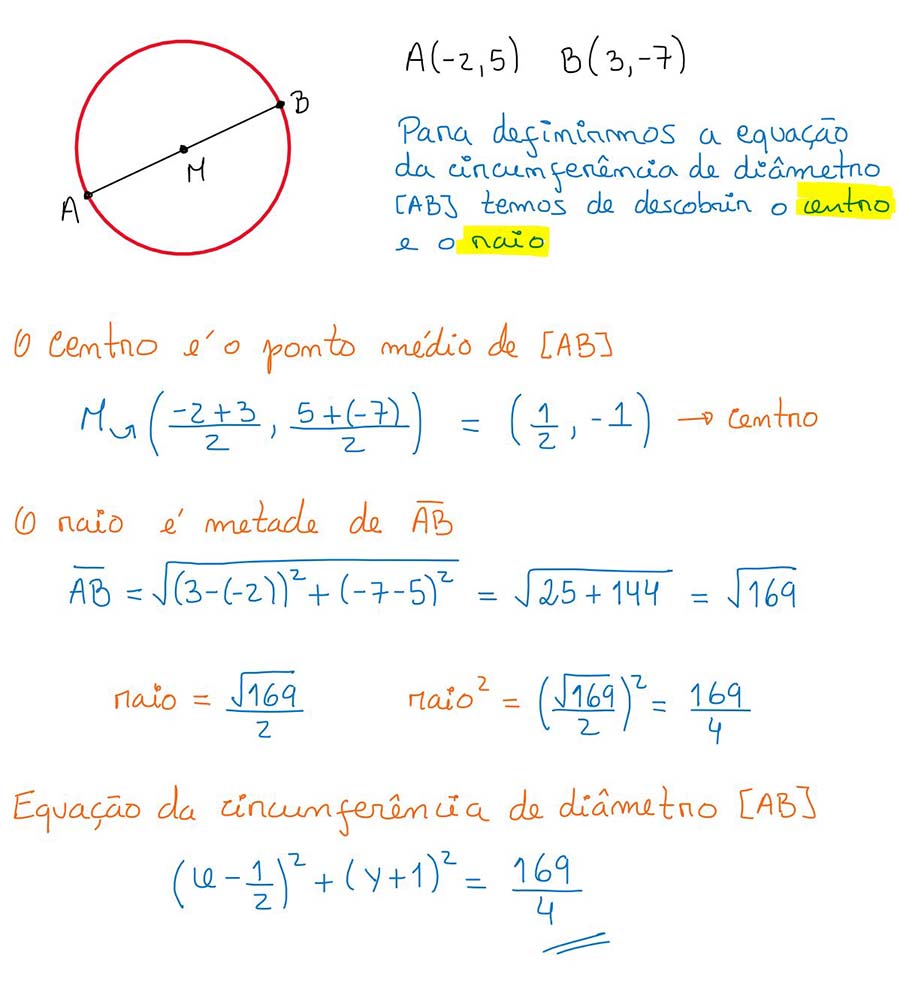 A(-2,5) B(3,-7)
B
M
A
Para definirmos a equação
da circunferência de diâmetro
[AB] temos de descobrir o centro
e o raio
O centro é o ponto médio de [AB]
M↝(\frac{-2+3}{2}, \frac{5+(-7)}{2}) = (\frac{1}{2}, -1) → centro
O raio é metade de \overline{AB}
\overline{AB} = √((3-(-2))² + (-7-5)²) = √(25+144) = √169
raio = \frac{√169}{2} raio² = (\frac{√169}{2})² = \frac{169}{4}
Equação da circunferência de diâmetro [AB]
(x - \frac{1}{2})² + (y+1)² = \frac{169}{4}